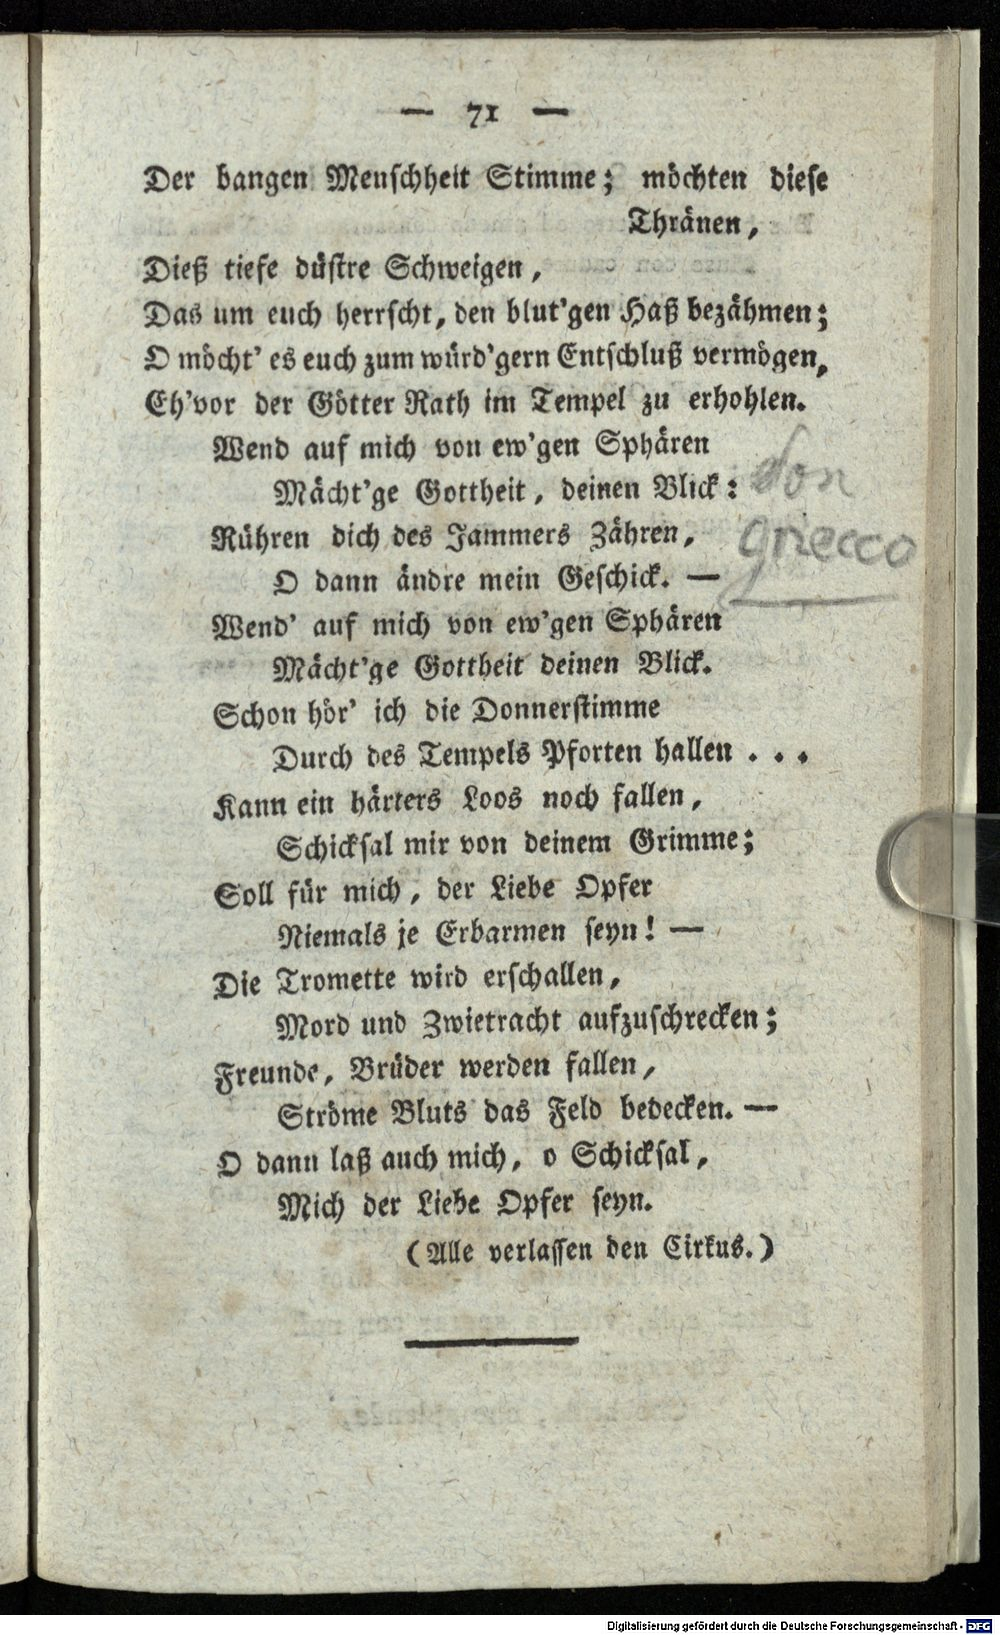 — 71 —
Der bangen Menschheit Stimme; möchten diese
Thränen,
Dieß tiefe düstre Schweigen,
Das um euch herrscht, den blut'gen Haß bezähmen;
O möcht' es euch zum würd'gern Entschluß vermögen,
Eh'vor der Götter Rath im Tempel zu erhohlen.
Wend auf mich von ew'gen Sphären
Mächt'ge Gottheit, deinen Blick:
Rühren dich des Jammers Zähren,
O dann ändre mein Geschick. —
Wend' auf mich von ew'gen Sphären
Mächt'ge Gottheit deinen Blick.
Schon hör' ich die Donnerstimme
Durch des Tempels Pforten hallen . . .
Kann ein härters Loos noch fallen,
Schicksal mir von deinem Grimme;
Soll für mich, der Liebe Opfer
Niemals je Erbarmen seyn! —
Die Tromette wird erschallen,
Mord und Zwietracht aufzuschrecken;
Freunde, Brüder werden fallen,
Ströme Bluts das Feld bedecken. —
O dann laß auch mich, o Schicksal,
Mich der Liebe Opfer seyn.
(Alle verlassen den Cirkus.)
Digitalisierung gefördert durch die Deutsche Forschungsgemeinschaft - DFG